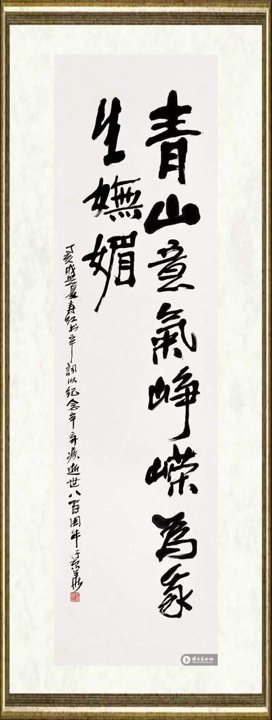 青山意氣崢嶸為我
生嫵媚
丁亥歲夏書辛詞以紀念辛弃疾逝世八百周年